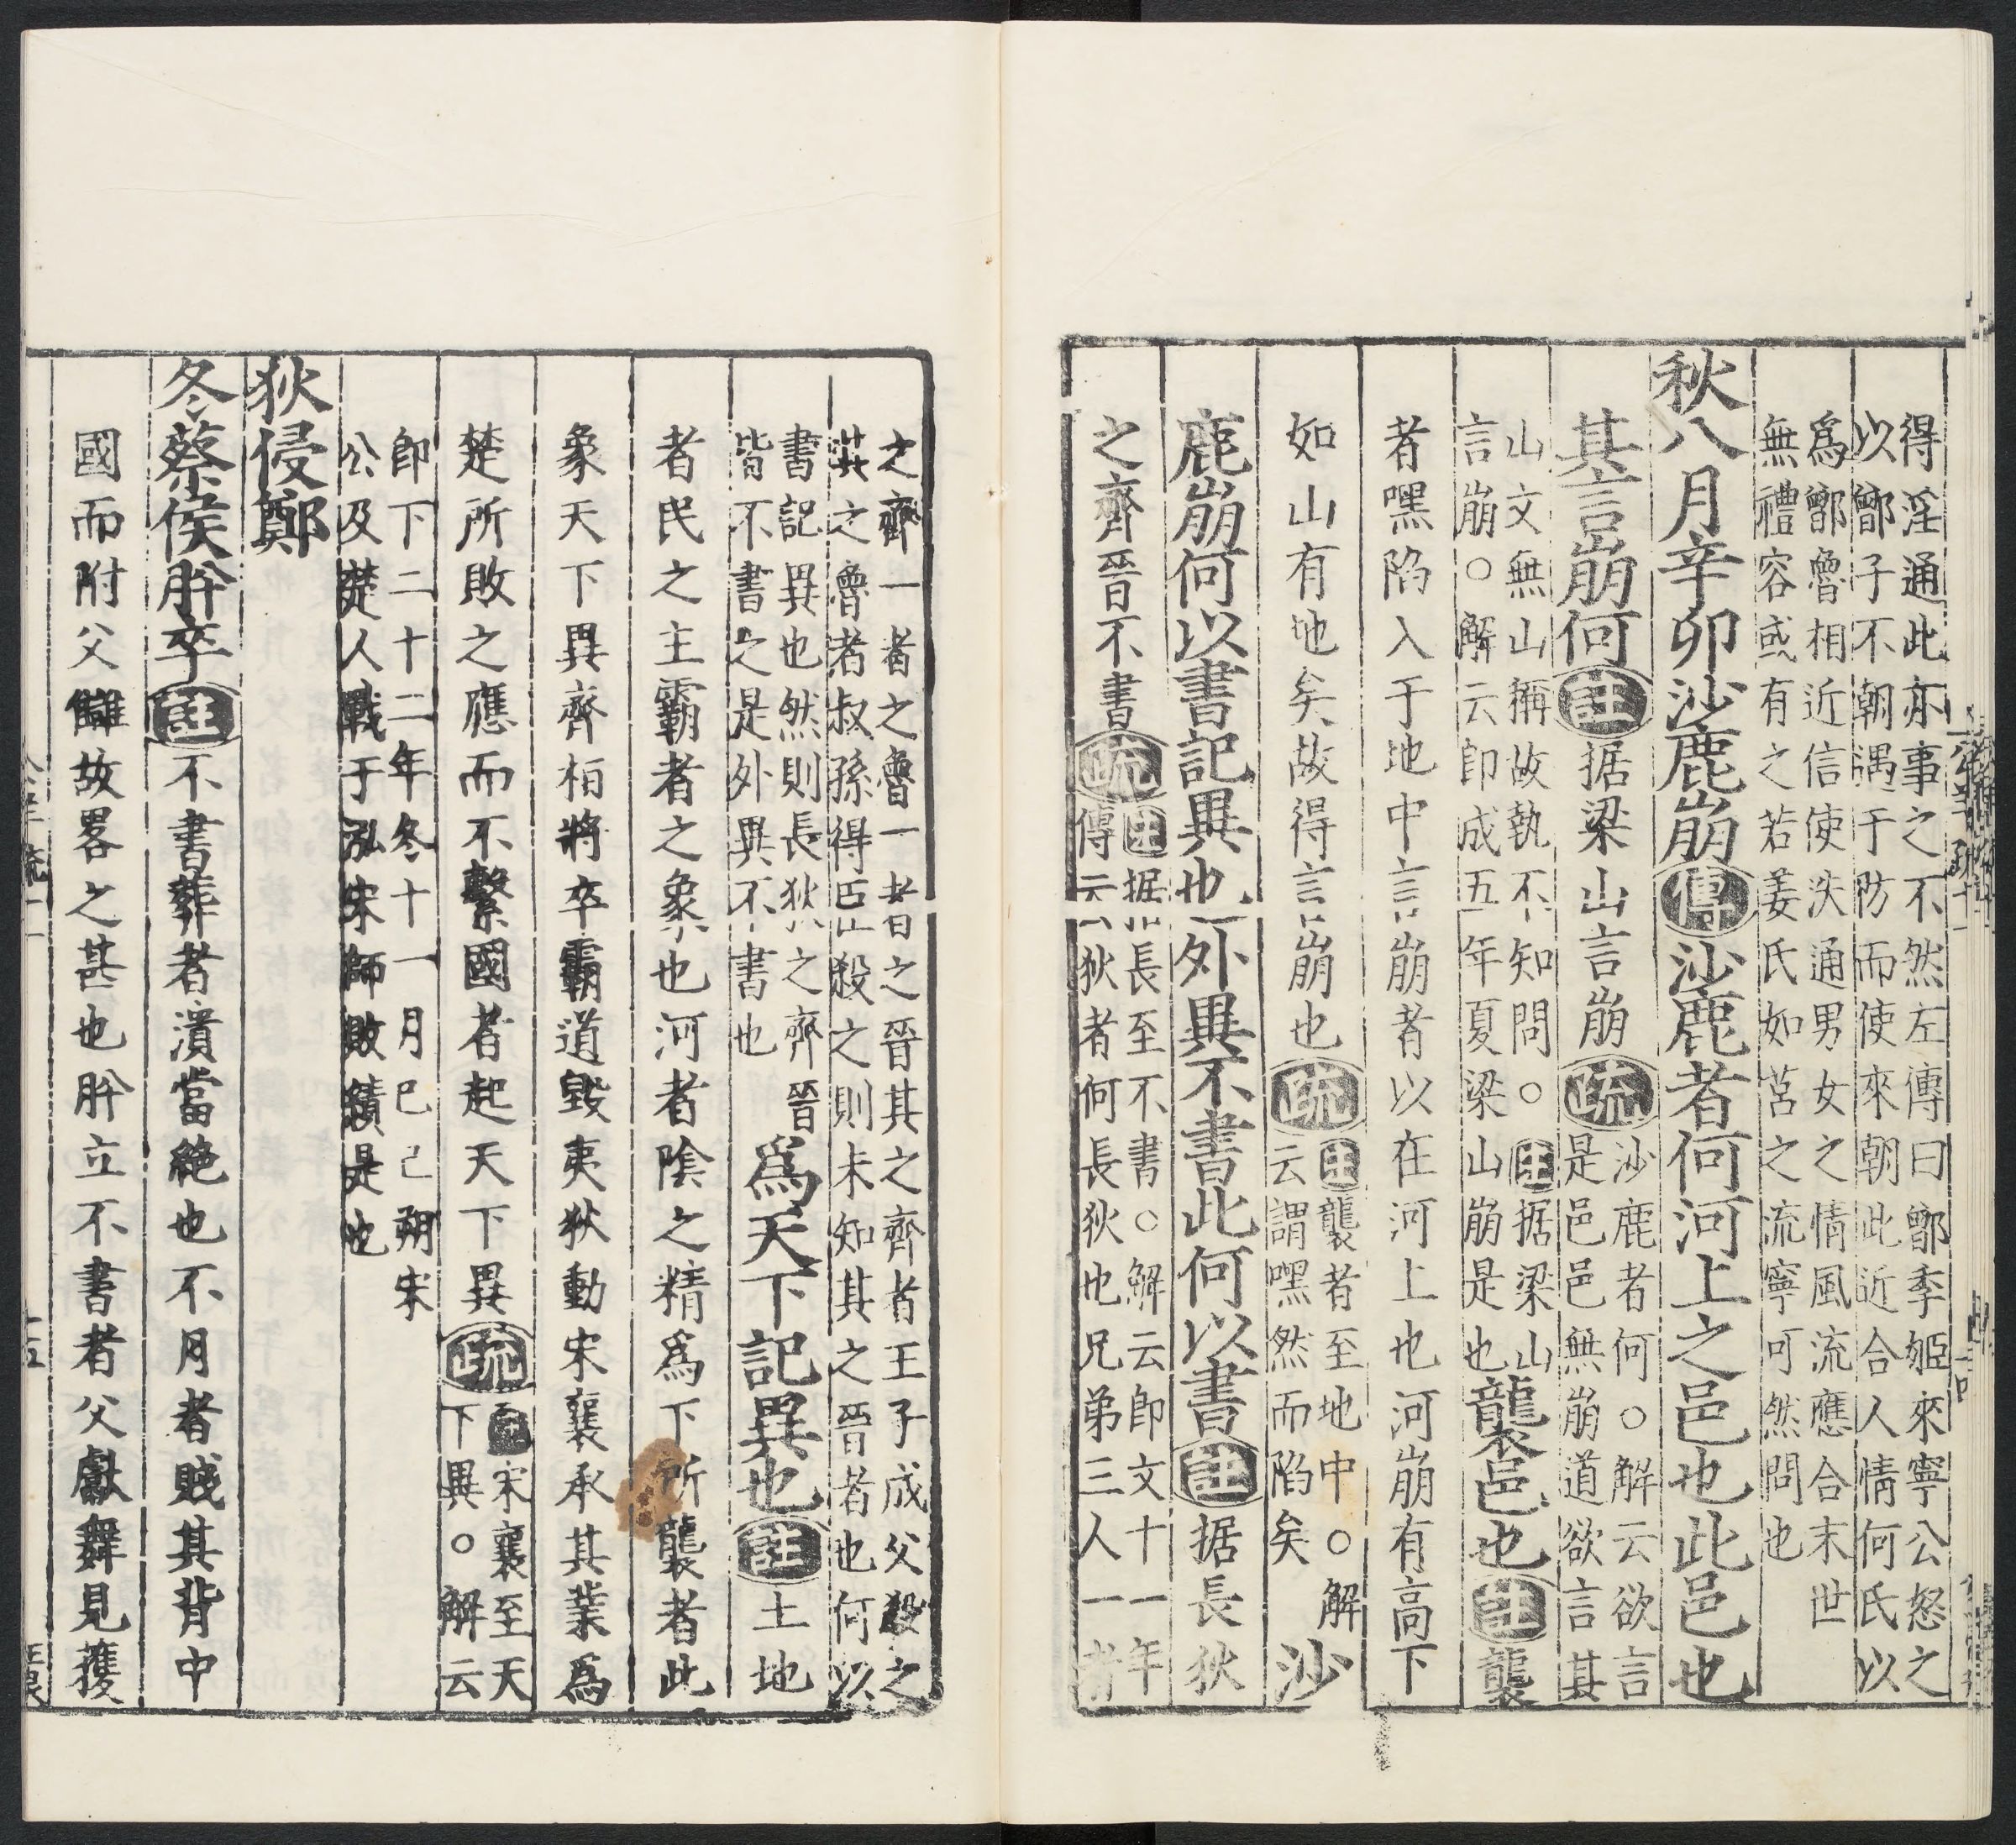 得淫通此亦事之不然左傳曰鄫季姬來寧公怒之
以鄫子不朝遇于防而使來朝此近合人情何氏以
爲鄫魯相近信使泆通男女之情風流應合末世
無禮容或有之若姜氏如莒之流寧可然問也
秋八月辛卯沙鹿崩傳沙鹿者何河上之邑也此邑也
其言崩何註据梁山言崩疏沙鹿者何○解云欲言
是邑邑無崩道欲言其
山文無山稱故執不知問○註据梁山
言崩○解云即成五年夏梁山崩是也襲邑也註襲
者嘿陷入于地中言崩者以在河上也河崩有高下
如山有地矣故得言崩也疏註襲者至地中○解
云謂嘿然而陷矣沙
鹿崩何以書記異也外異不書此何以書註据長狄
之齊晉不書疏註据長至不書○解云即文十一年
傳云狄者何長狄也兄弟三人一者
之齊一者之魯一者之晉其之齊者王子成父殺之
其之魯者叔孫得臣殺之則未知其之晉者也何以
書記異也然則長狄之齊晉
皆不書之是外異不書也爲天下記異也註土地
者民之主霸者之象也河者陰之精爲下所襲者此
象天下異齊桓將卒霸道毀夷狄動宋襄承其業爲
楚所敗之應而不繫國者起天下異疏註宋襄至天
下異○解云
即下二十二年冬十一月己巳朔宋
公及楚人戰于泓宋師敗績是也
狄侵鄭
冬蔡侯肸卒註不書葬者潰當絶也不月者賤其背中
國而附父讎故畧之甚也肸立不書者父獻舞見獲